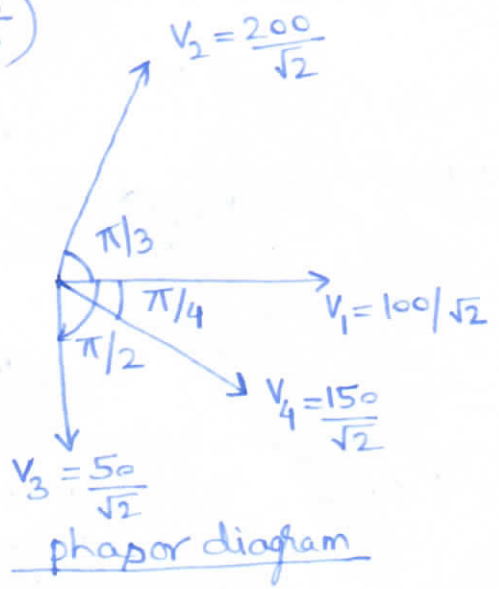 V₂ = 200/√2
π/3
π/4
V₁ = 100/√2
π/2
V₄ = 150/√2
V₃ = 50/√2
phapor diagram